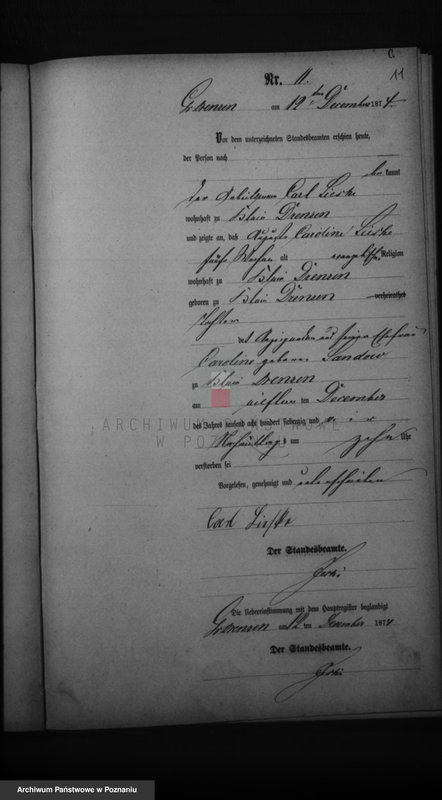 C.
11
Nr. 11.
Gr. Drensen am 12 ten December 1874
Vor dem unterzeichneten Standesbeamten erschien heute,
der Person nach
be kannt
der Carl Lieske
wohnhaft zu Klein Drensen
und zeigte an, daß Auguste Caroline Lieske
fünf Wochen alt evangelischer Religion
wohnhaft zu Klein Drensen
geboren zu Klein Drensen verheirathet
Tochter
des Anzeigenden und seiner Ehefrau
Caroline geborene Sandow
zu Klein Drensen
am eilften ten December
des Jahres tausend acht hundert siebenzig und vier
Nachmittags um zehn Uhr
verstorben sei
Vorgelesen, genehmigt und unterschrieben
Carl Lieske
Der Standesbeamte.
Die Uebereinstimmung mit dem Hauptregister beglaubigt
Gr. Drensen am 12 ten December 1874
Der Standesbeamte.
ARCHIWUM PAŃSTWOWE
W POZNANIU
Archiwum Państwowe w Poznaniu